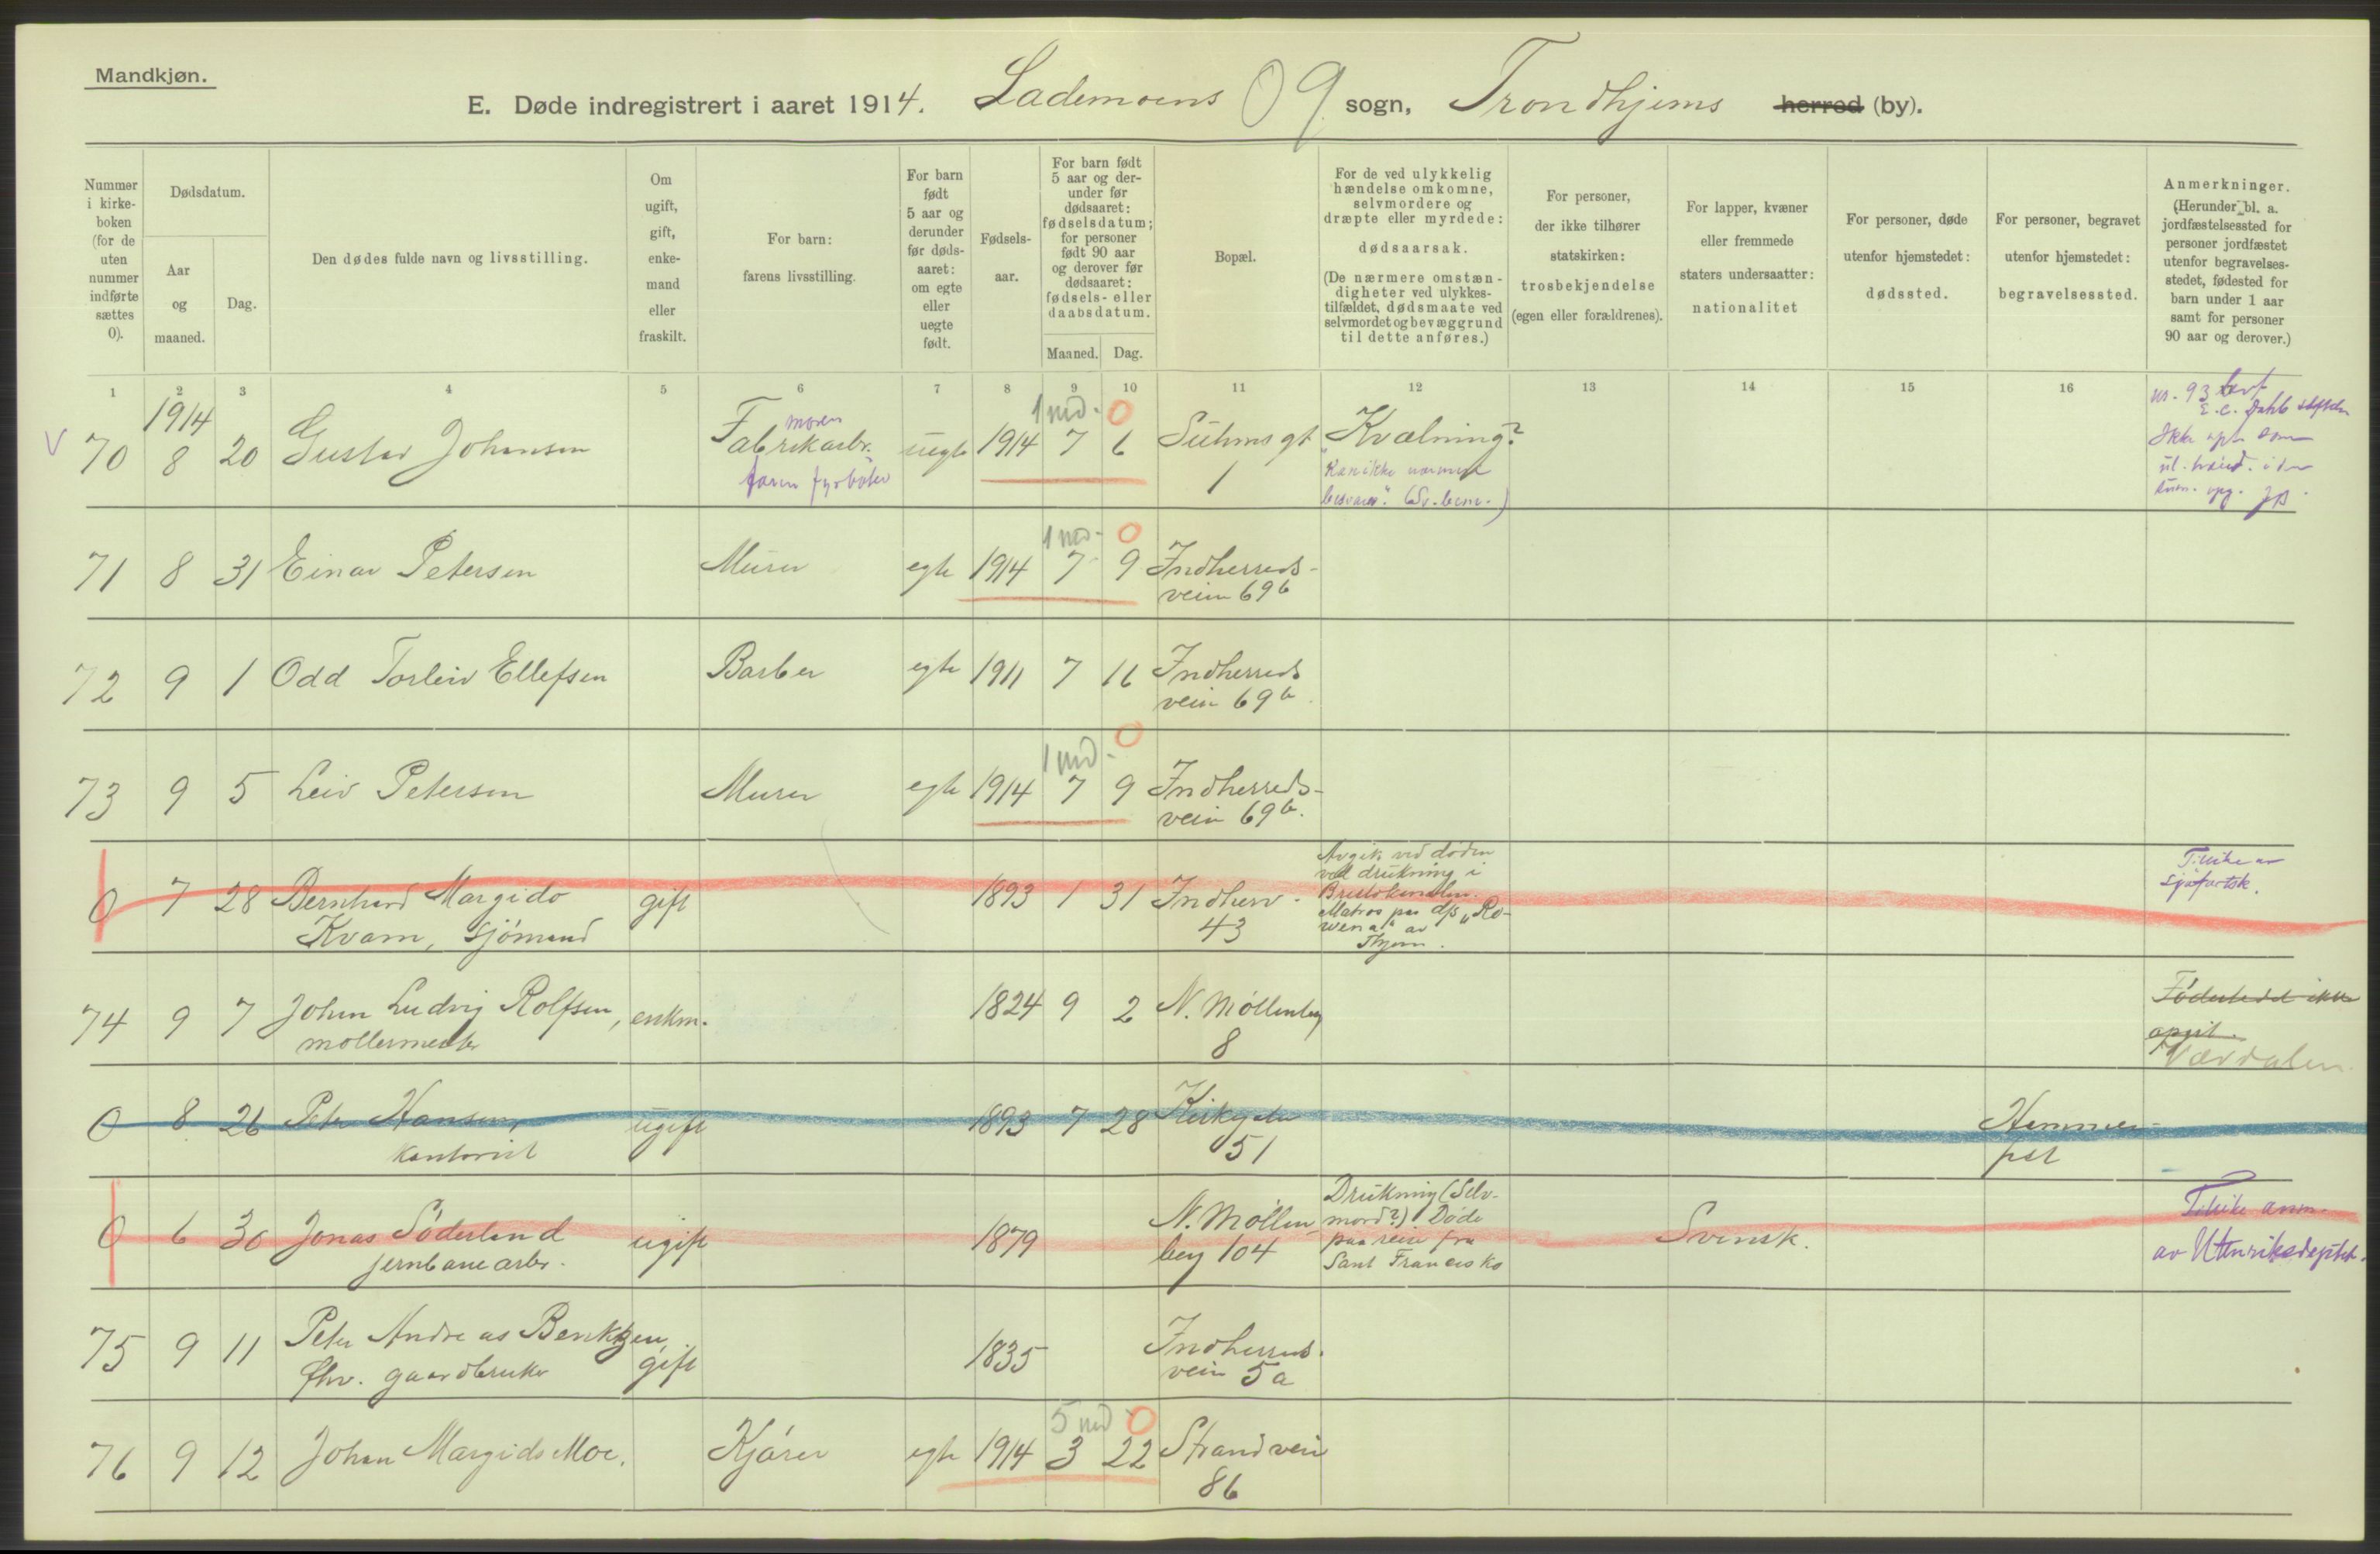 Mandkjøn.
E. Døde indregistrert i aaret 1914. Lademoens 09 sogn, Trondhjems herred (by).
Nummer i kirke- boken (for de uten nummer indførte sættes 0).
Dødsdatum.
Aar og maaned.
Dag.
Den dødes fulde navn og livsstilling.
Om ugift, gift, enke- mand eller fraskilt.
For barn: farens livsstilling.
For barn født 5 aar og derunder før døds- aaret: om egte eller uegte født.
Fødsels- aar.
For barn født 5 aar og der- under før dødsaaret: fødselsdatum; for personer født 90 aar og derover før dødsaaret: fødsels- eller daabsdatum.
Maaned. Dag.
Bopæl.
For de ved ulykkelig hændelse omkomne, selvmordere og dræpte eller myrdede: dødsaarsak. (De nærmere omstæn- digheter ved ulykkes- tilfældet, dødsmaate ved selvmordet og bevæggrund til dette anføres.)
For personer, der ikke tilhører statskirken: trosbekjendelse (egen eller forældrenes).
For lapper, kvæner eller fremmede staters undersaatter: nationalitet
For personer, døde utenfor hjemstedet: dødssted.
For personer, begravet utenfor hjemstedet: begravelsessted.
Anmerkninger. (Herunder bl. a. jordfæstelsessted for personer jordfæstet utenfor begravelses- stedet, fødested for barn under 1 aar samt for personer 90 aar og derover.)
1 2 3 4 5 6 7 8 9 10 11 12 13 14 15 16
1914
V 70 8 20 Gustav Johansen moren Fabrikarb. uegte 1914 1 md. 7 0 6 Suhmsgt Kvælning?
faren fyrbøter 1 "Kan ikke nærmere
(Sv. bem.)
nr. 93
71 8 31 Einar Petersen Murer egte 1914 1 md. 7 0 9 Indherreds-
veien 69b
72 9 1 Odd Torleiv Ellefsen Barber egte 1911 7 16 Indherreds
vein 69b.
73 9 5 Leiv Petersen Murer egte 1914 1 md. 7 0 9 Indherreds-
vein 69b.
0 7 28 Bernhard Margido gift 1893 1 31 Indherr.
Kvam, sjómand 43
Avgik ved døden
ved drukning i
Bristolkanalen.
Matros paa d/s "Ro-
wena" av
Thjem.
Tilike av
sjøfartsk.
74 9 7 Johan Ludvig Rolfsen, enkm. 1824 9 2 N. Möllenbg
möllermester 8
Födested ikke
opgit.
Værdalen.
0 8 26 Peter Hansen, ugift 1893 7 28 Kirkegata Hammer-
kontorist 51 fest
0 6 30 Jonas Söderlund ugift 1879 N. Möllen- Svensk.
jernbanearb. beg 104
Drukning (Selv-
mord?) Døde
paa reise fra
Sant Francisko
Tilike anm.
av Utenriksdeptet.
75 9 11 Peter Andreas Benktzen, gift 1835 Indherreds.
fhv. gaardbruker vein 5a
76 9 12 Johan Margido Moe. Kjörer egte 1914 5 md 3 0 22 Strandvein
86